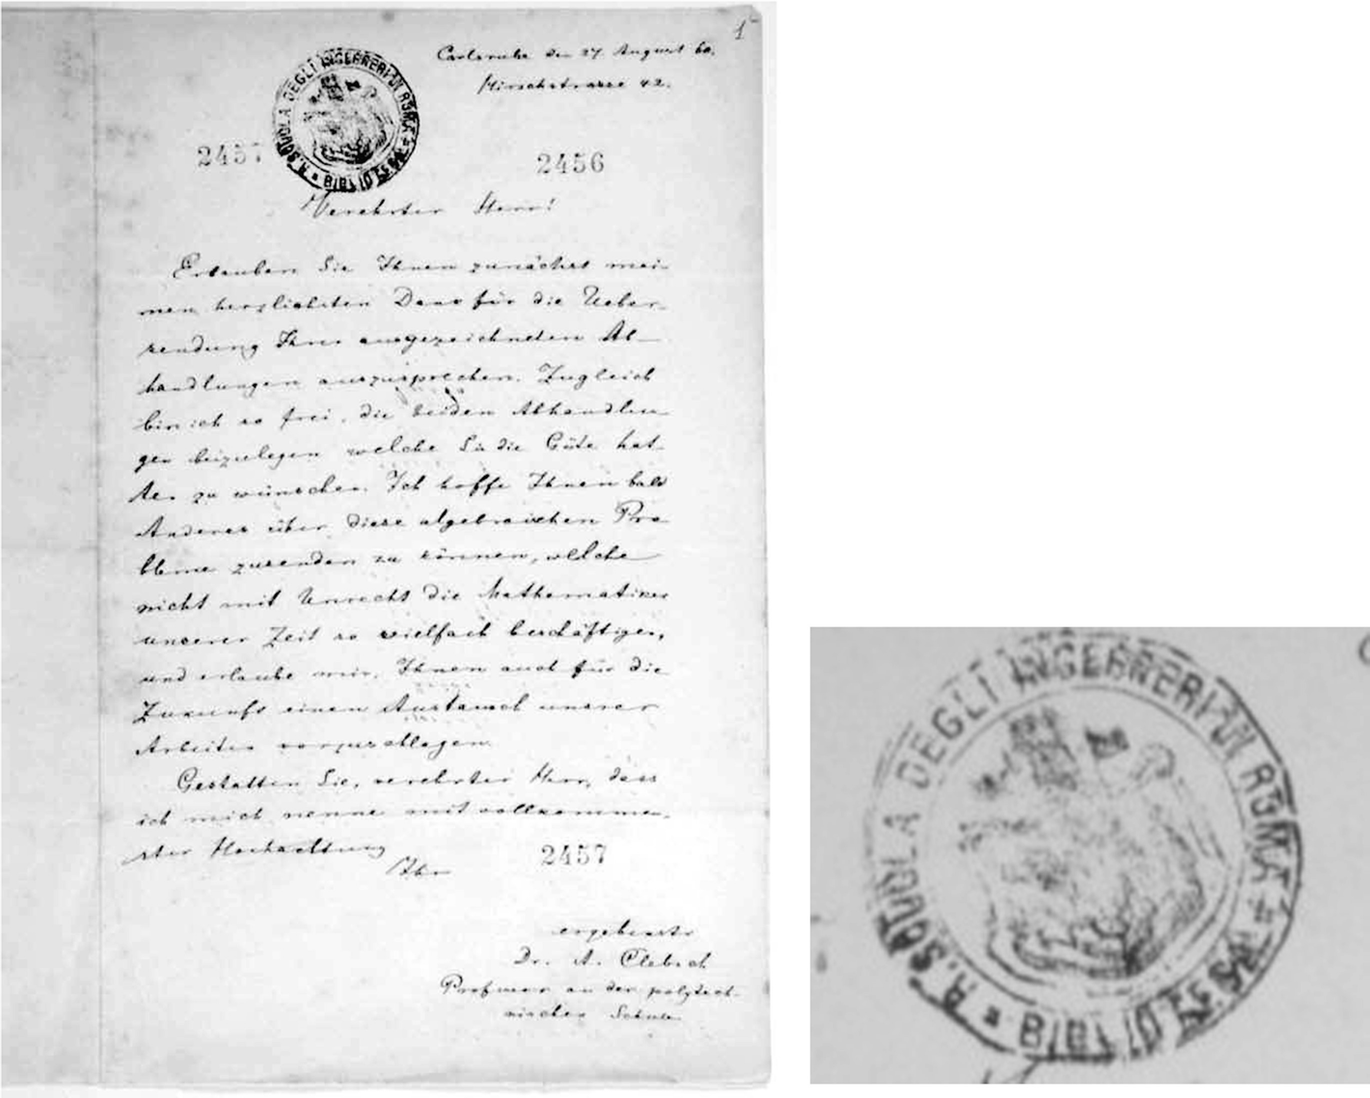 1
Carlsruhe den 27 August 60.
Hirschstrasse 42.
R. SCUOLA DEGLI INGEGNERI IN ROMA
BIBLIOTECA
2457
2456
Verehrter Herr!
Erlauben Sie Ihnen zunächst mei-
nen herzlichsten Dank für die Ueber-
sendung Ihrer ausgezeichneten Ab-
handlungen auszusprechen. Zugleich
bin ich so frei, die beiden Abhandlun
gen beizulegen welche Sie die Güte hat-
ten zu wünschen. Ich hoffe Ihnen bald
Anderes über diese algebraischen Pro
bleme zusenden zu können, welche
nicht mit Unrecht die Mathematiker
unserer Zeit so vielfach beschäftigen,
und erlaube mir, Ihnen auch für die
Zukunft einen Austausch unserer
Arbeiten vorzuschlagen.
Gestatten Sie, verehrter Herr, dass
ich mich nenne mit vollkommen-
ster Hochachtung
Ihr
2457
ergebenster
Dr. A. Clebsch
Professor an der polytech-
nischen Schule
R. SCUOLA DEGLI INGEGNERI IN ROMA
BIBLIOTECA